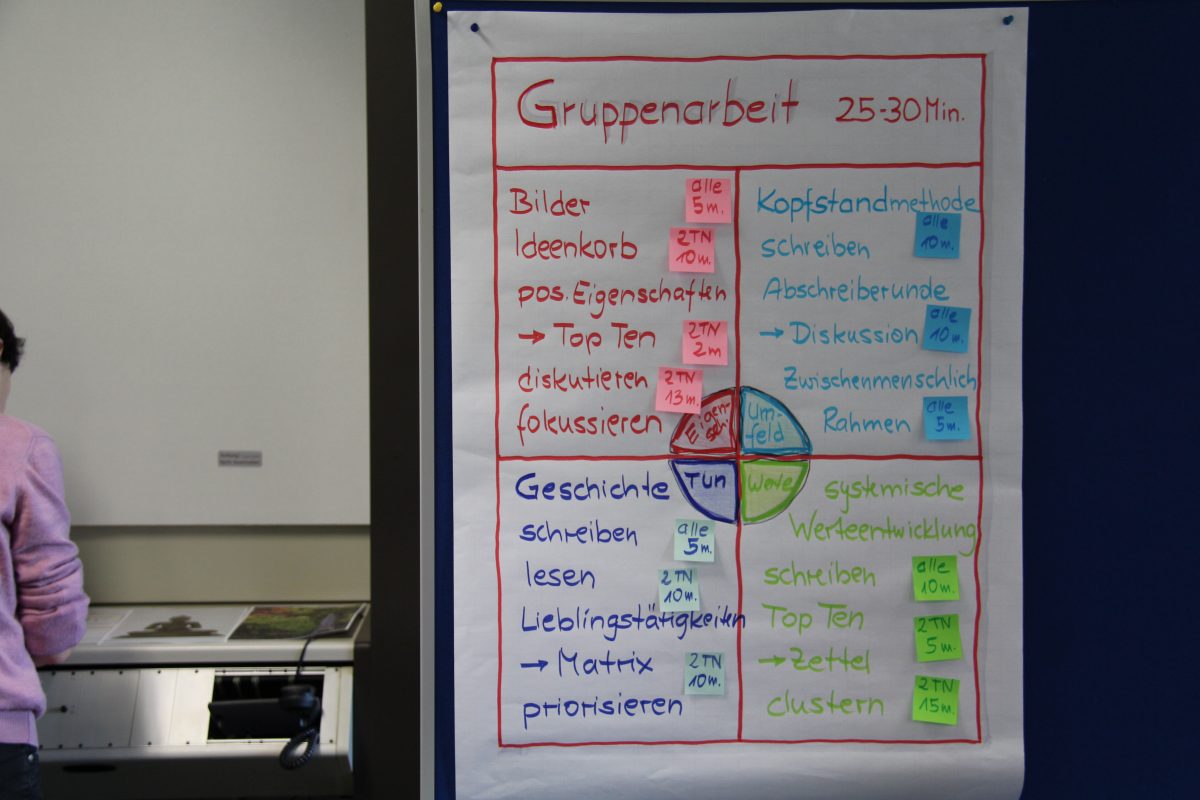 Gruppenarbeit 25-30 Min.
Bilder
alle
5 m.
Ideenkorb
2 TN
10 m.
pos. Eigenschaften
→ Top Ten
2 TN
2 m
diskutieren
2 TN
13 m.
fokussieren
Kopfstandmethode
alle
10 m.
schreiben
Abschreiberunde
→ Diskussion
alle
10 m.
Zwischenmenschlich
Rahmen
alle
5 m.
Eigen-
sch.
Um-
feld
Tun
Werte
Geschichte
schreiben
alle
5 m.
lesen
2 TN
10 m.
Lieblingstätigkeiten
→ Matrix
2 TN
10 m.
priorisieren
systemische
Werteentwicklung
schreiben
alle
10 m.
Top Ten
2 TN
5 m.
→ Zettel
clustern
2 TN
15 m.